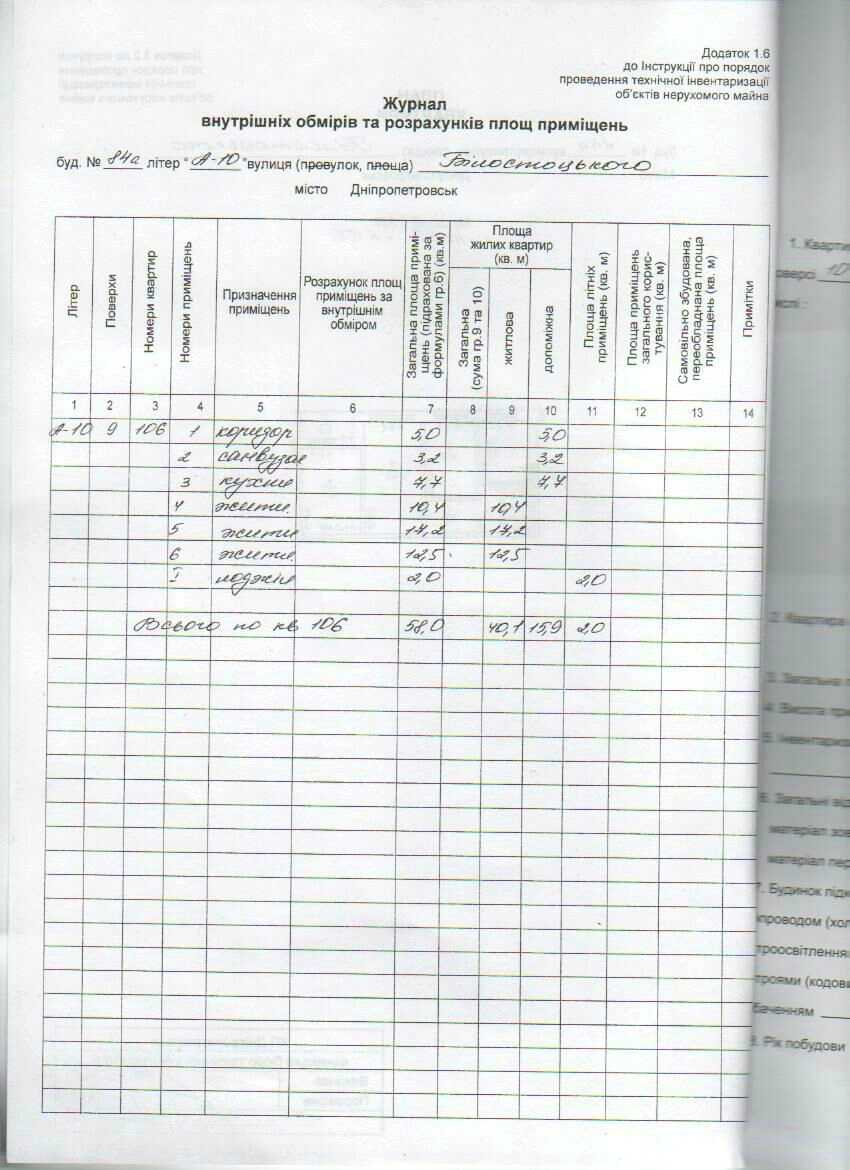 Додаток 1.6
до Інструкції про порядок
проведення технічної інвентаризації
об'єктів нерухомого майна
Журнал
внутрішніх обмірів та розрахунків площ приміщень
буд. № 84а літер "А-10" вулиця (провулок, площа) Білостоцького
місто Дніпропетровськ
Літер
Поверхи
Номери квартир
Номери приміщень
Призначення приміщень
Розрахунок площ приміщень за внутрішнім обміром
Загальна площа приміщень (підрахована за формулами гр.6) (кв.м)
Площа жилих квартир (кв. м)
Загальна (сума гр.9 та 10)
житлова
допоміжна
Площа літніх приміщень (кв. м)
Площа приміщень загального користування (кв. м)
Самовільно збудована, переобладнана площа приміщень (кв. м)
Примітки
1 2 3 4 5 6 7 8 9 10 11 12 13 14
А-10 9 106 1 коридор 5,0 5,0
2 санвузол 3,2 3,2
3 кухня 7,7 7,7
4 житл. 10,4 10,4
5 житл 17,2 17,2
6 житл. 12,5 12,5
I лоджія 2,0 2,0
Всього по кв 106 58,0 40,1 15,9 2,0
1. Квартир
оверсі 10
ислі :
2. Квартира
3. Загальна п
4. Висота при
5. Інвентариз
6. Загальні від
матеріал зов
матеріал пер
7. Будинок підк
опроводом (хол
троосвітлення
троями (кодови
баченням
8. Рік побудови